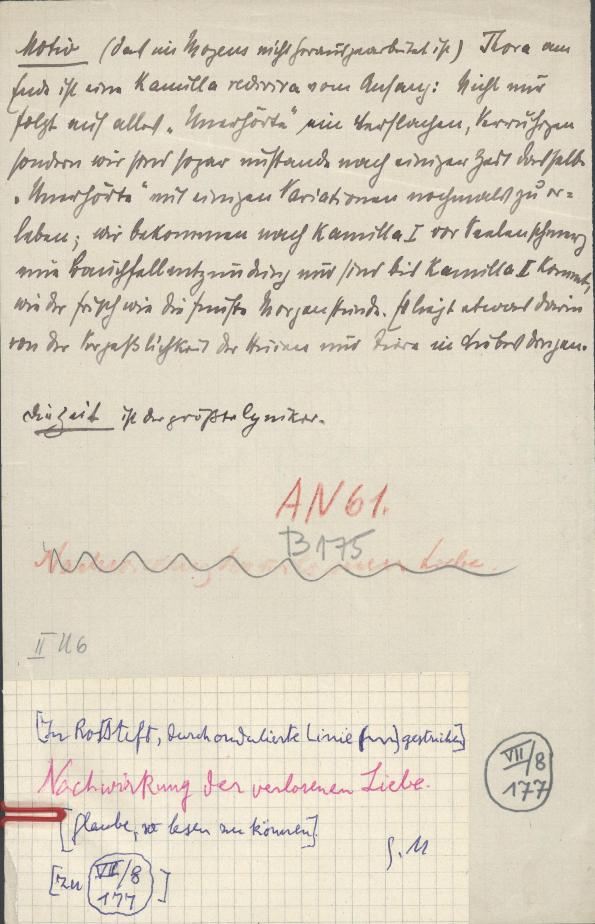 Motiv (das im Mogens nicht herausgearbeitet ist) Thora am
Ende ist eine Kamilla rediviva vom Anfang: Nicht nur
folgt auf alles „Unerhörte“ ein Verflachen, Verruhigen
sondern wir sind sogar imstande nach einiger Zeit dasselbe
„Unerhörte“ mit einigen Variationen nochmals zu er-
leben; wir bekommen nach Kamilla I vor Seelenschmerz
eine Bauchfellentzündung und sind bis Kamilla II kommt,
wieder frisch wie die Morgenstunde. Es liegt etwas darin
von der Vergeßlichkeit der und Tiere in Liebesdingen.
Die Zeit ist der größte Cyniker.
AN 61.
B 175
Nachwirkung der verlosenen Liebe.
II 116
[In Rotstift, durch ondulierte Linie gestrichen]
Nachwirkung der verlosenen Liebe.
[glaube, so lesen zu können]
[zu VII/8
177]
VII/8
177